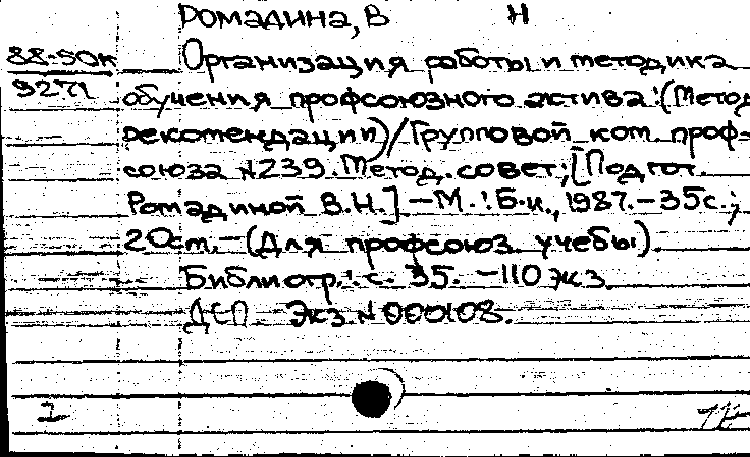 Ромадина, В Н
88-50к Организация работы и методика
9271 обучения профсоюзного актива: (Метод.
рекомендации) / Групповой ком. проф-
союза №239. Метод. совет; [Подгот.
Ромадиной В.Н.] - М. : Б.и., 1987. - 35с.;
20см. - (Для профсоюз. учебы).
Библиогр.: с. 35. - 110 экз.
ДСП. Экз. №000108.